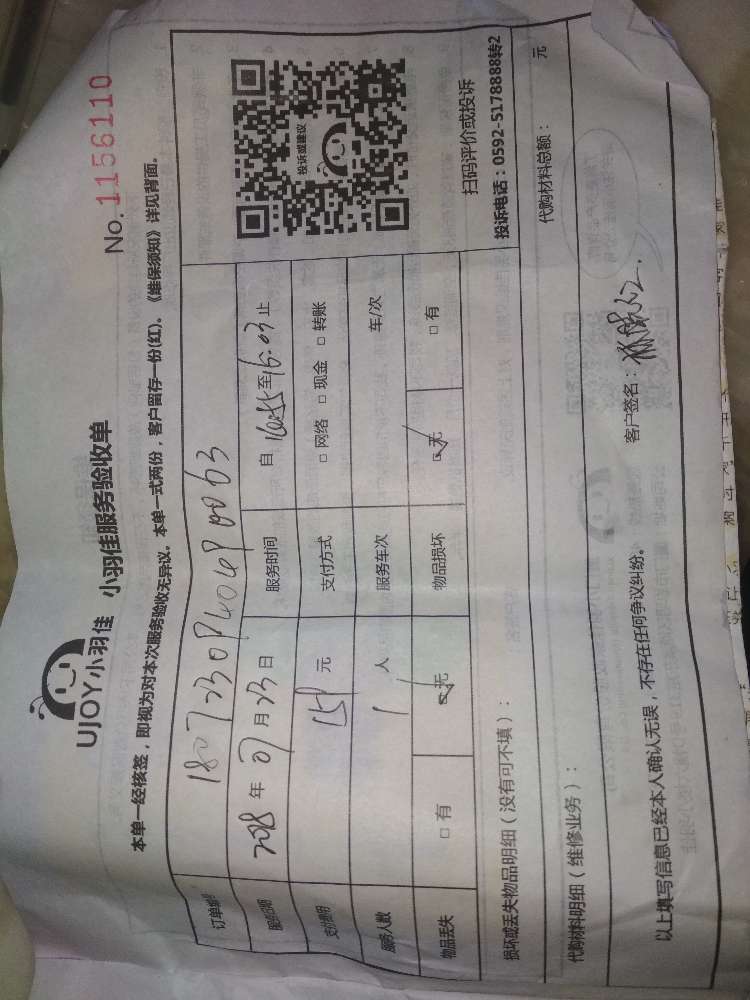 UJOY小羽佳 小羽佳服务验收单
No.1156110
本单一经核签，即视为对本次服务验收无异议。本单一式两份，客户留存一份(红)。《维保须知》详见背面。
订单编号 180723084049 0063
服务日期 2018 年 07 月 23 日 服务时间 自 至 16:03 止
支付费用 元 支付方式 □ 网络 □ 现金 □ 转账
服务人数 1 人 服务车次 车/次
物品丢失 □ 有 ☑ 无 物品损坏 ☑ 无 □ 有
投诉或建议
扫码评价或投诉
投诉电话：0592-5178888转2
损坏或丢失物品明细（没有可不填）：
代购材料明细（维修业务）： 代购材料总额： 元
以上填写信息已经本人确认无误，不存在任何争议纠纷。 客户签名：